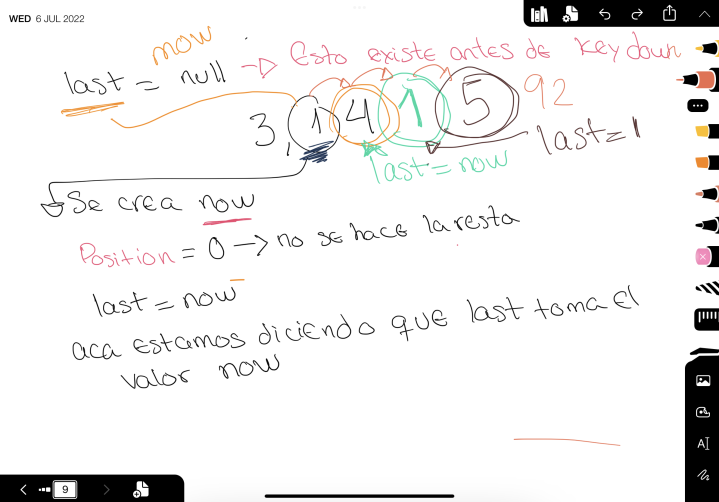 WED 6 JUL 2022
now
last = null -> Esto existe antes de keydown
3,1 4 1 5 92
last = now
last = 1
Se crea now
Position = 0 -> no se hace la resta
last = now
aca estamos diciendo que last toma el
valor now
9
A